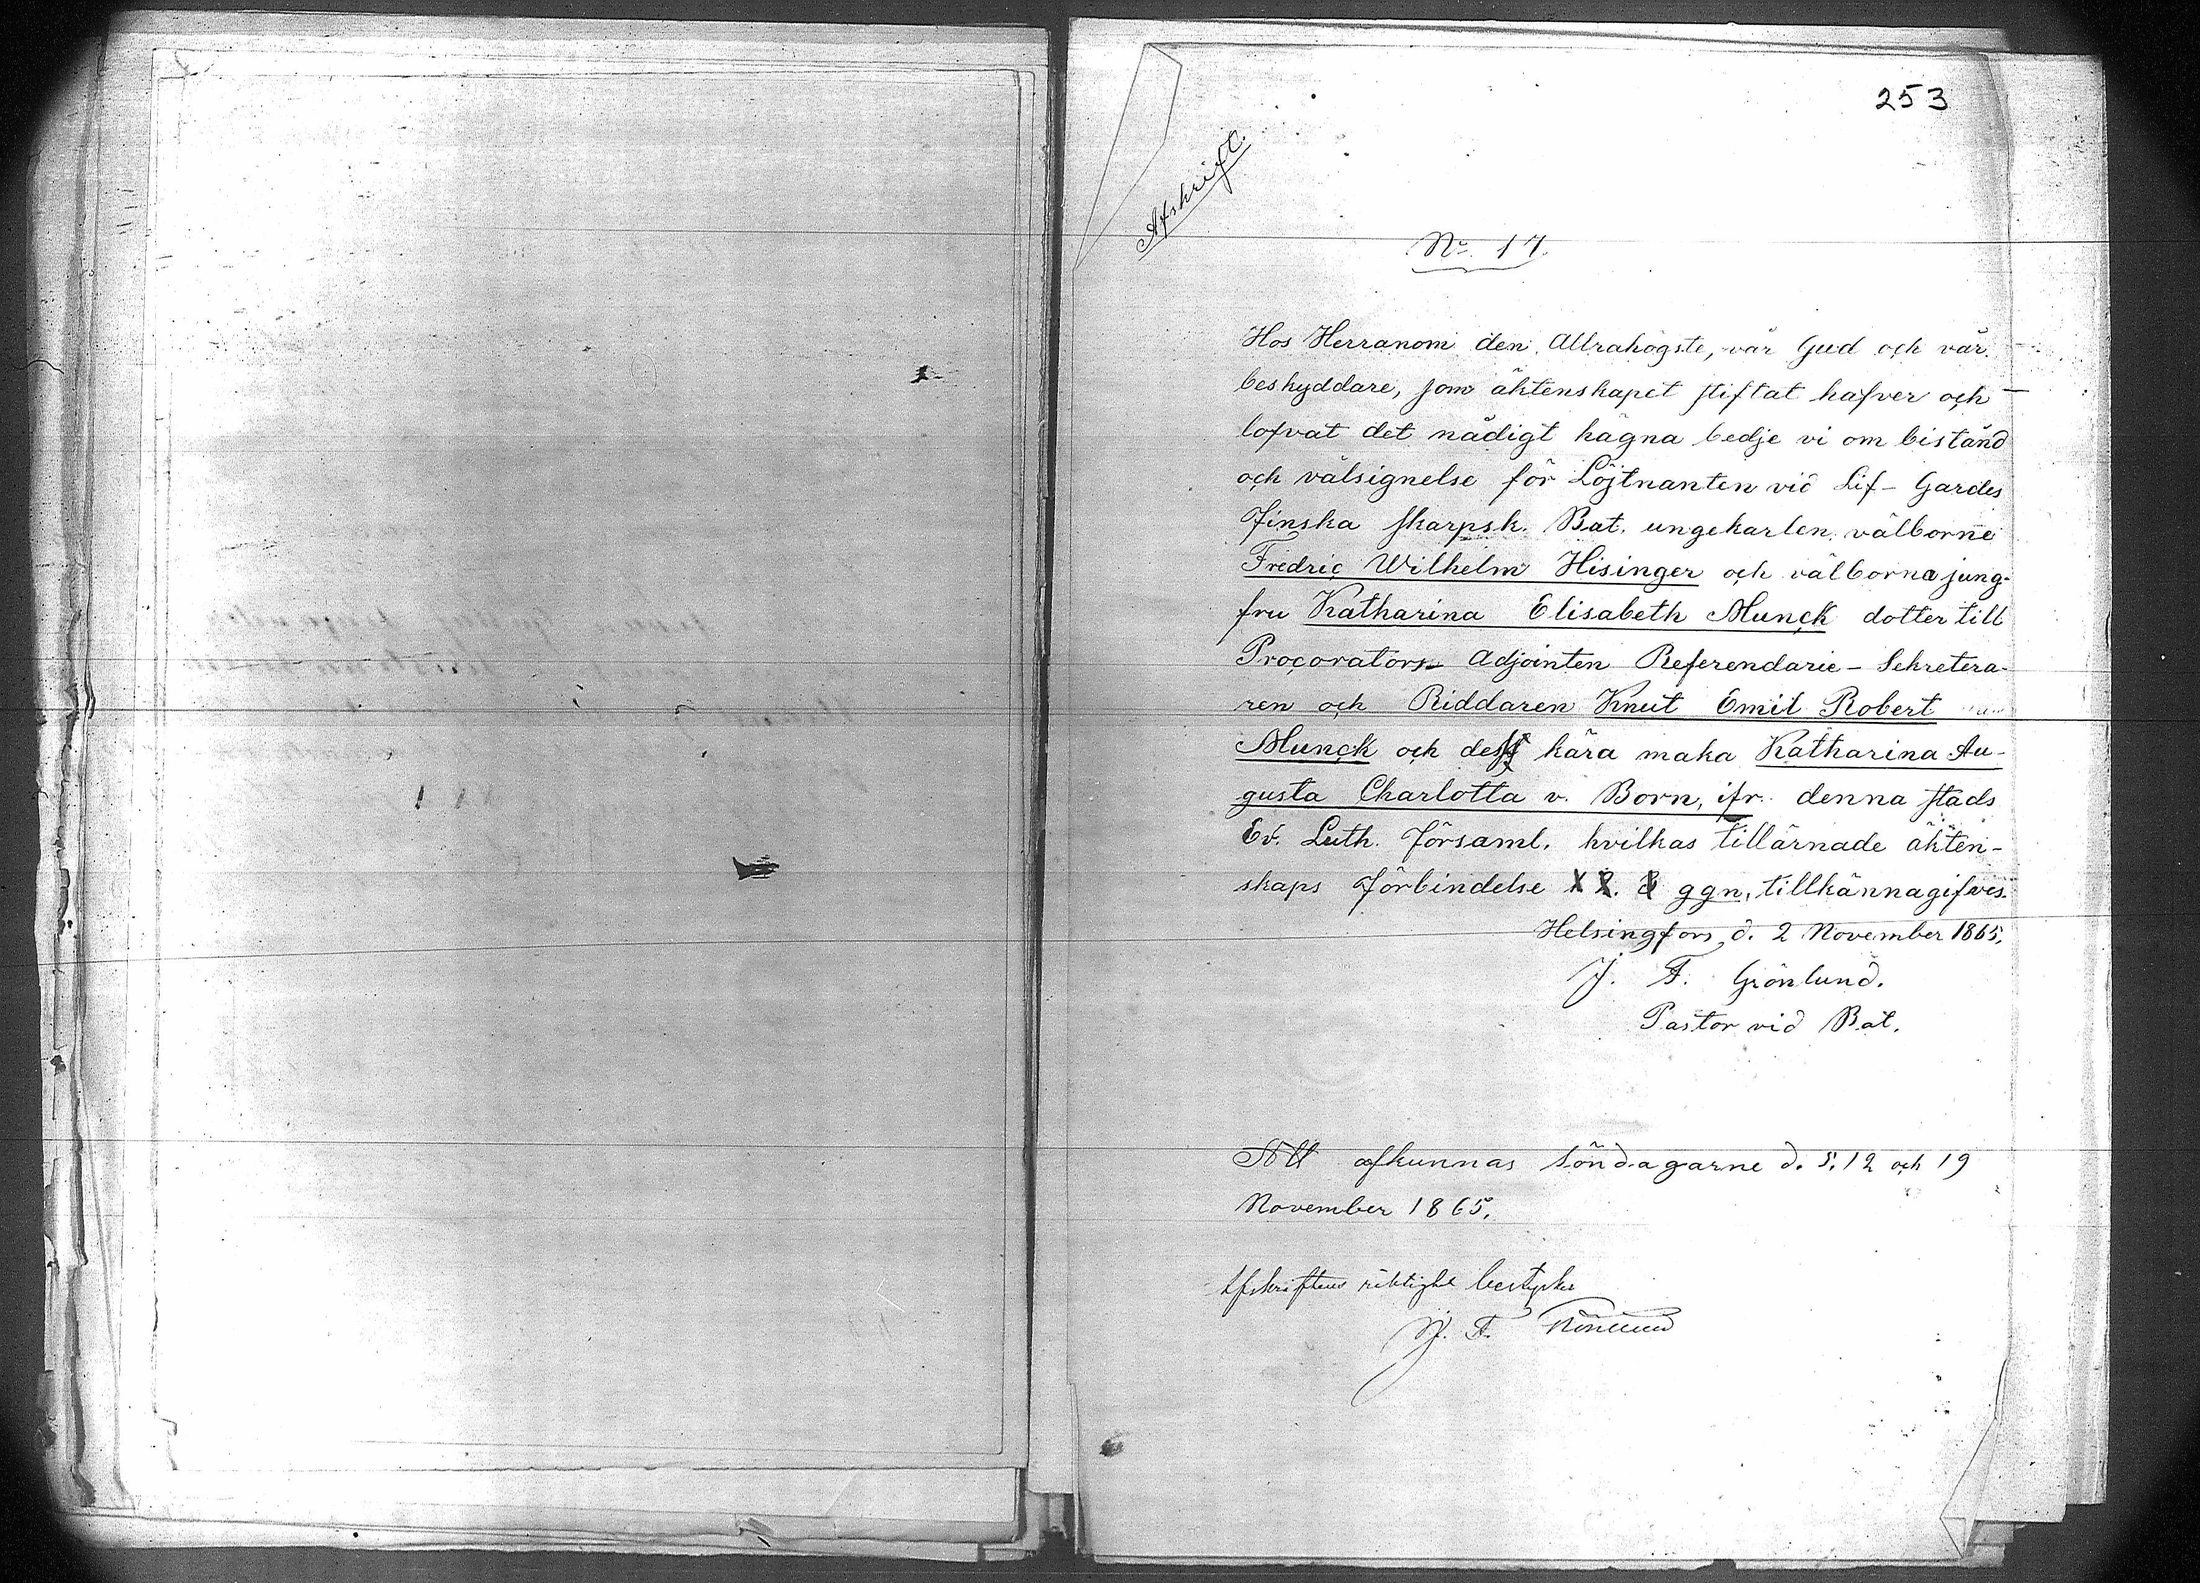 253
Afskrift.
No. 17.
Hos Herranom den Allrahögste, vår Gud och vår
beskyddare, som äktenskapet stiftat hafver och
lofvat det nådigt hägna bedje vi om bistånd
och välsignelse för Löjtnanten vid Lif-Gardes
Finska skarpsk. Bat. ungekarlen, välborne
Fredric Wilhelm Hisinger och välborna jung-
fru Katharina Elisabeth Munck dotter till
Procorators-Adjointen Referendarie-Sekretera-
ren och Riddaren Knut Emil Robert
Munck och dess kära maka Katharina Au-
gusta Charlotta v. Born, ifr. denna stads
Ev. Luth. Församl. hvilkas tillärnade äkten-
skaps förbindelse 1 2. 3 ggn, tillkännagifves.
Helsingfors, d. 2 November 1865.
J. F. Grönlund.
Pastor vid Bat.
Att afkunnas Söndagarne d. 5. 12 och 19
November 1865.
Afskriftens riktighet bestyrker
J. F. Grönlund